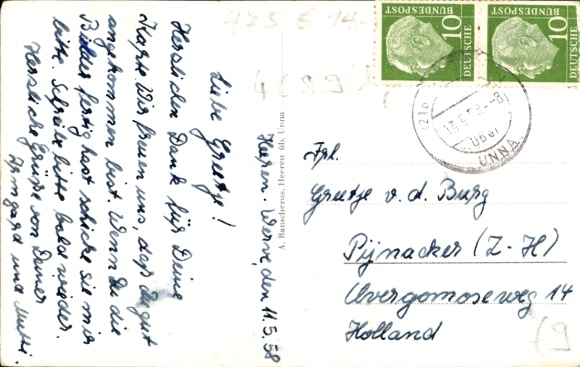 Heeren-Werve, den 11.5.58
Liebe Greetje!
Herzlichen Dank für Deine
Karte. Wir freuen uns, daß Du gut
angekommen bist. Wenn Du die
Bilder fertig hast schicke sie mir
bitte. Schreibe bitte bald wieder.
Herzliche Grüße von Deiner
Irmgard und Mutti.
A. Bauscherus, Heeren üb. Unna
10 DEUTSCHE BUNDESPOST
10 DEUTSCHE BUNDESPOST
über
UNNA
Frl.
Greetje v. d. Burg
Pijnacker (Z-H)
Overgomoseweg 14
Holland